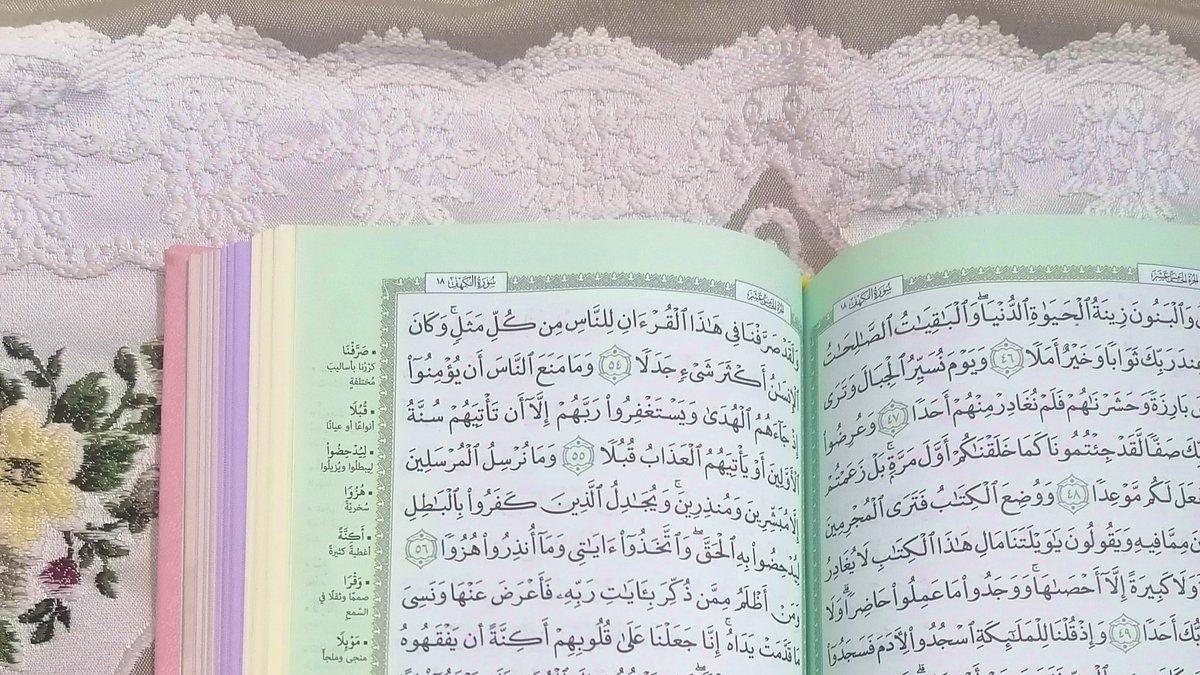 الجزء الخامس عشر
سُورَةُ الكَهْفِ ١٨
وَٱلْبَنُونَ زِينَةُ ٱلْحَيَوٰةِ ٱلدُّنْيَاۖ وَٱلْبَٰقِيَٰتُ ٱلصَّٰلِحَٰتُ
عِندَ رَبِّكَ ثَوَابًا وَخَيْرٌ أَمَلًا ٤٦ وَيَوْمَ نُسَيِّرُ ٱلْجِبَالَ وَتَرَى
بَارِزَةً وَحَشَرْنَٰهُمْ فَلَمْ نُغَادِرْ مِنْهُمْ أَحَدًا ٤٧ وَعُرِضُوا۟
صَفًّا لَّقَدْ جِئْتُمُونَا كَمَا خَلَقْنَٰكُمْ أَوَّلَ مَرَّةٍۭۚ بَلْ زَعَمْتُمْ
لَكُم مَّوْعِدًا ٤٨ وَوُضِعَ ٱلْكِتَٰبُ فَتَرَى ٱلْمُجْرِمِينَ
مِمَّا فِيهِ وَيَقُولُونَ يَٰوَيْلَتَنَا مَالِ هَٰذَا ٱلْكِتَٰبِ لَا يُغَادِرُ
وَلَا كَبِيرَةً إِلَّآ أَحْصَىٰهَاۚ وَوَجَدُوا۟ مَا عَمِلُوا۟ حَاضِرًاۗ وَلَا
أَحَدًا ٤٩ وَإِذْ قُلْنَا لِلْمَلَٰٓئِكَةِ ٱسْجُدُوا۟ لِءَادَمَ فَسَجَدُوٓا۟
الجزء الخامس عشر
سُورَةُ الكَهْفِ ١٨
وَلَقَدْ صَرَّفْنَا فِى هَٰذَا ٱلْقُرْءَانِ لِلنَّاسِ مِن كُلِّ مَثَلٍۚ وَكَانَ
ٱلْإِنسَٰنُ أَكْثَرَ شَىْءٍ جَدَلًا ٥٤ وَمَا مَنَعَ ٱلنَّاسَ أَن يُؤْمِنُوٓا۟
إِذْ جَآءَهُمُ ٱلْهُدَىٰ وَيَسْتَغْفِرُوا۟ رَبَّهُمْ إِلَّآ أَن تَأْتِيَهُمْ سُنَّةُ
ٱلْأَوَّلِينَ أَوْ يَأْتِيَهُمُ ٱلْعَذَابُ قُبُلًا ٥٥ وَمَا نُرْسِلُ ٱلْمُرْسَلِينَ
إِلَّا مُبَشِّرِينَ وَمُنذِرِينَۚ وَيُجَٰدِلُ ٱلَّذِينَ كَفَرُوا۟ بِٱلْبَٰطِلِ
لِيُدْحِضُوا۟ بِهِ ٱلْحَقَّۖ وَٱتَّخَذُوٓا۟ ءَايَٰتِى وَمَآ أُنذِرُوا۟ هُزُوًا ٥٦
وَمَنْ أَظْلَمُ مِمَّن ذُكِّرَ بِـَٔايَٰتِ رَبِّهِۦ فَأَعْرَضَ عَنْهَا وَنَسِىَ
مَا قَدَّمَتْ يَدَاهُۚ إِنَّا جَعَلْنَا عَلَىٰ قُلُوبِهِمْ أَكِنَّةً أَن يَفْقَهُوهُ
▪ صَرَّفْنَا
كرَّرْنا بأساليبَ
مُختلفةٍ
▪ قُبُلًا
أنواعًا أو عيانًا
▪ لِيُدْحِضُوا۟
ليبطلوا ويُزيلُوا
▪ هُزُوًا
سُخريَّة
▪ أَكِنَّةً
أغطيةً كثيرةً
▪ وَقْرًا
صممًا وثقلًا في
السَّمع
▪ مَوْئِلًا
منجى وملجأً